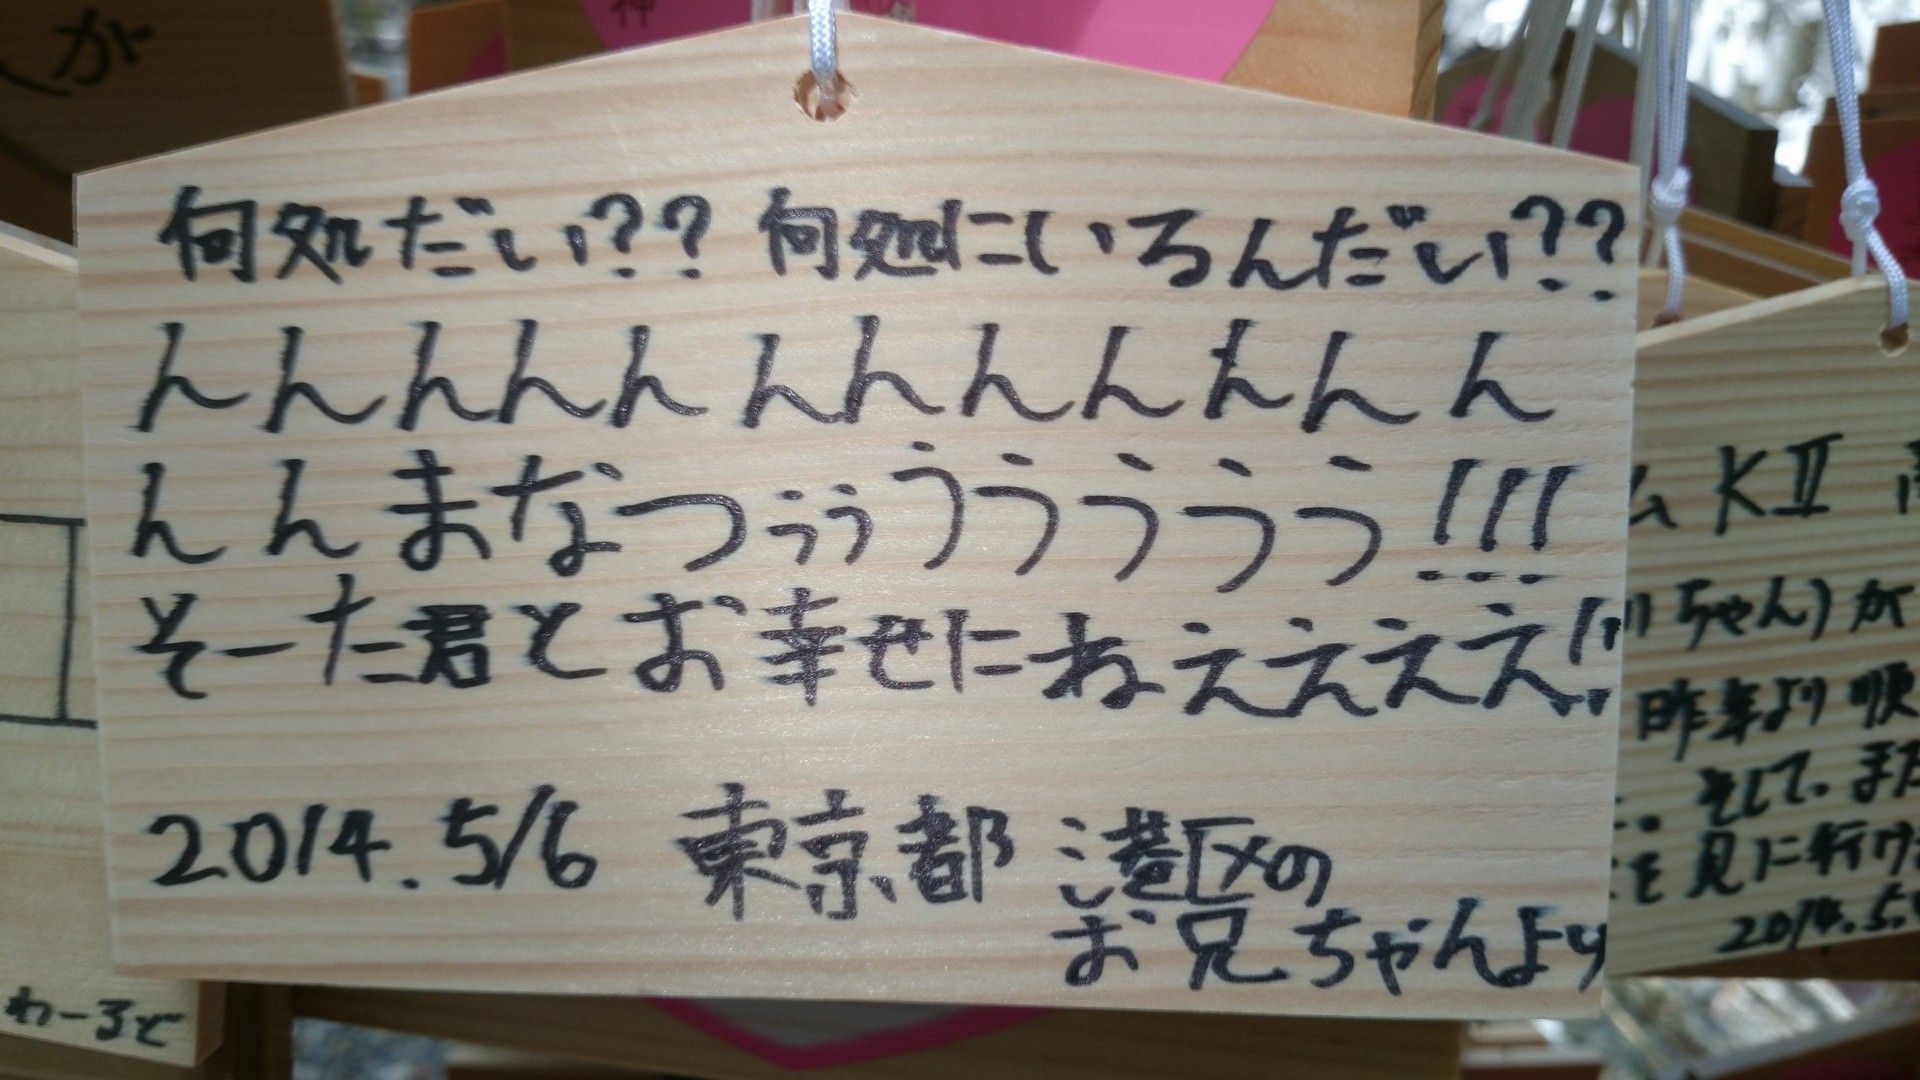 何処だい？？ 何処にいるんだい？？
んんんんん んんんんんんん
んんまなつぅぅううううう!!!
そーた君とお幸せにねぇぇぇえ!!
2014.5/6 東京都 港区の
お兄ちゃんより
が
わーるど
ム KⅡ
ちゃん)が
昨年より順
。そして、また
を見に行け
2014.5.